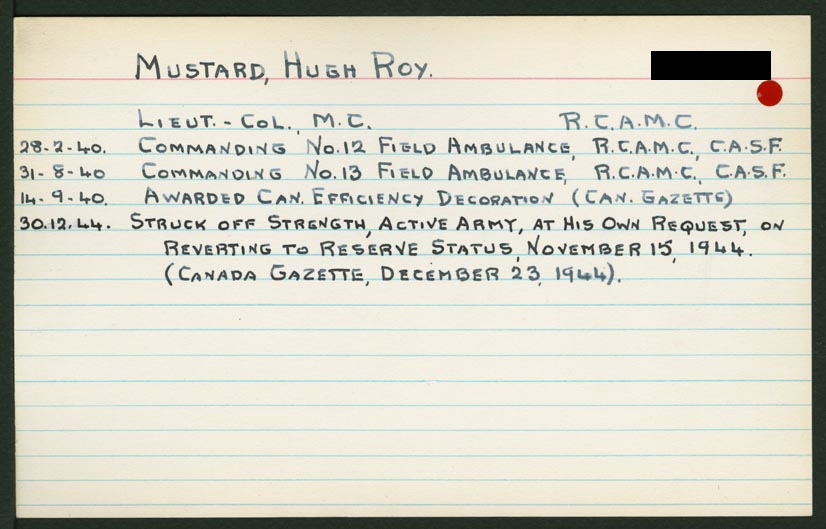 MUSTARD, HUGH ROY.
LIEUT. - COL., M.C. R.C.A.M.C.
28-2-40. COMMANDING No.12 FIELD AMBULANCE, R.C.A.M.C., C.A.S.F.
31-8-40 COMMANDING No.13 FIELD AMBULANCE, R.C.A.M.C., C.A.S.F.
14-9-40. AWARDED CAN. EFFICIENCY DECORATION (CAN. GAZETTE)
30.12.44. STRUCK OFF STRENGTH, ACTIVE ARMY, AT HIS OWN REQUEST, ON
REVERTING TO RESERVE STATUS, NOVEMBER 15, 1944.
(CANADA GAZETTE, DECEMBER 23, 1944).